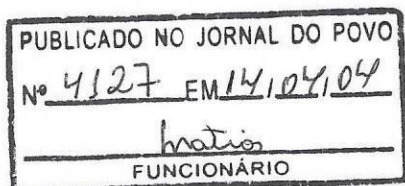 PUBLICADO NO JORNAL DO POVO
Nº 4127 EM 14/04/04
FUNCIONÁRIO